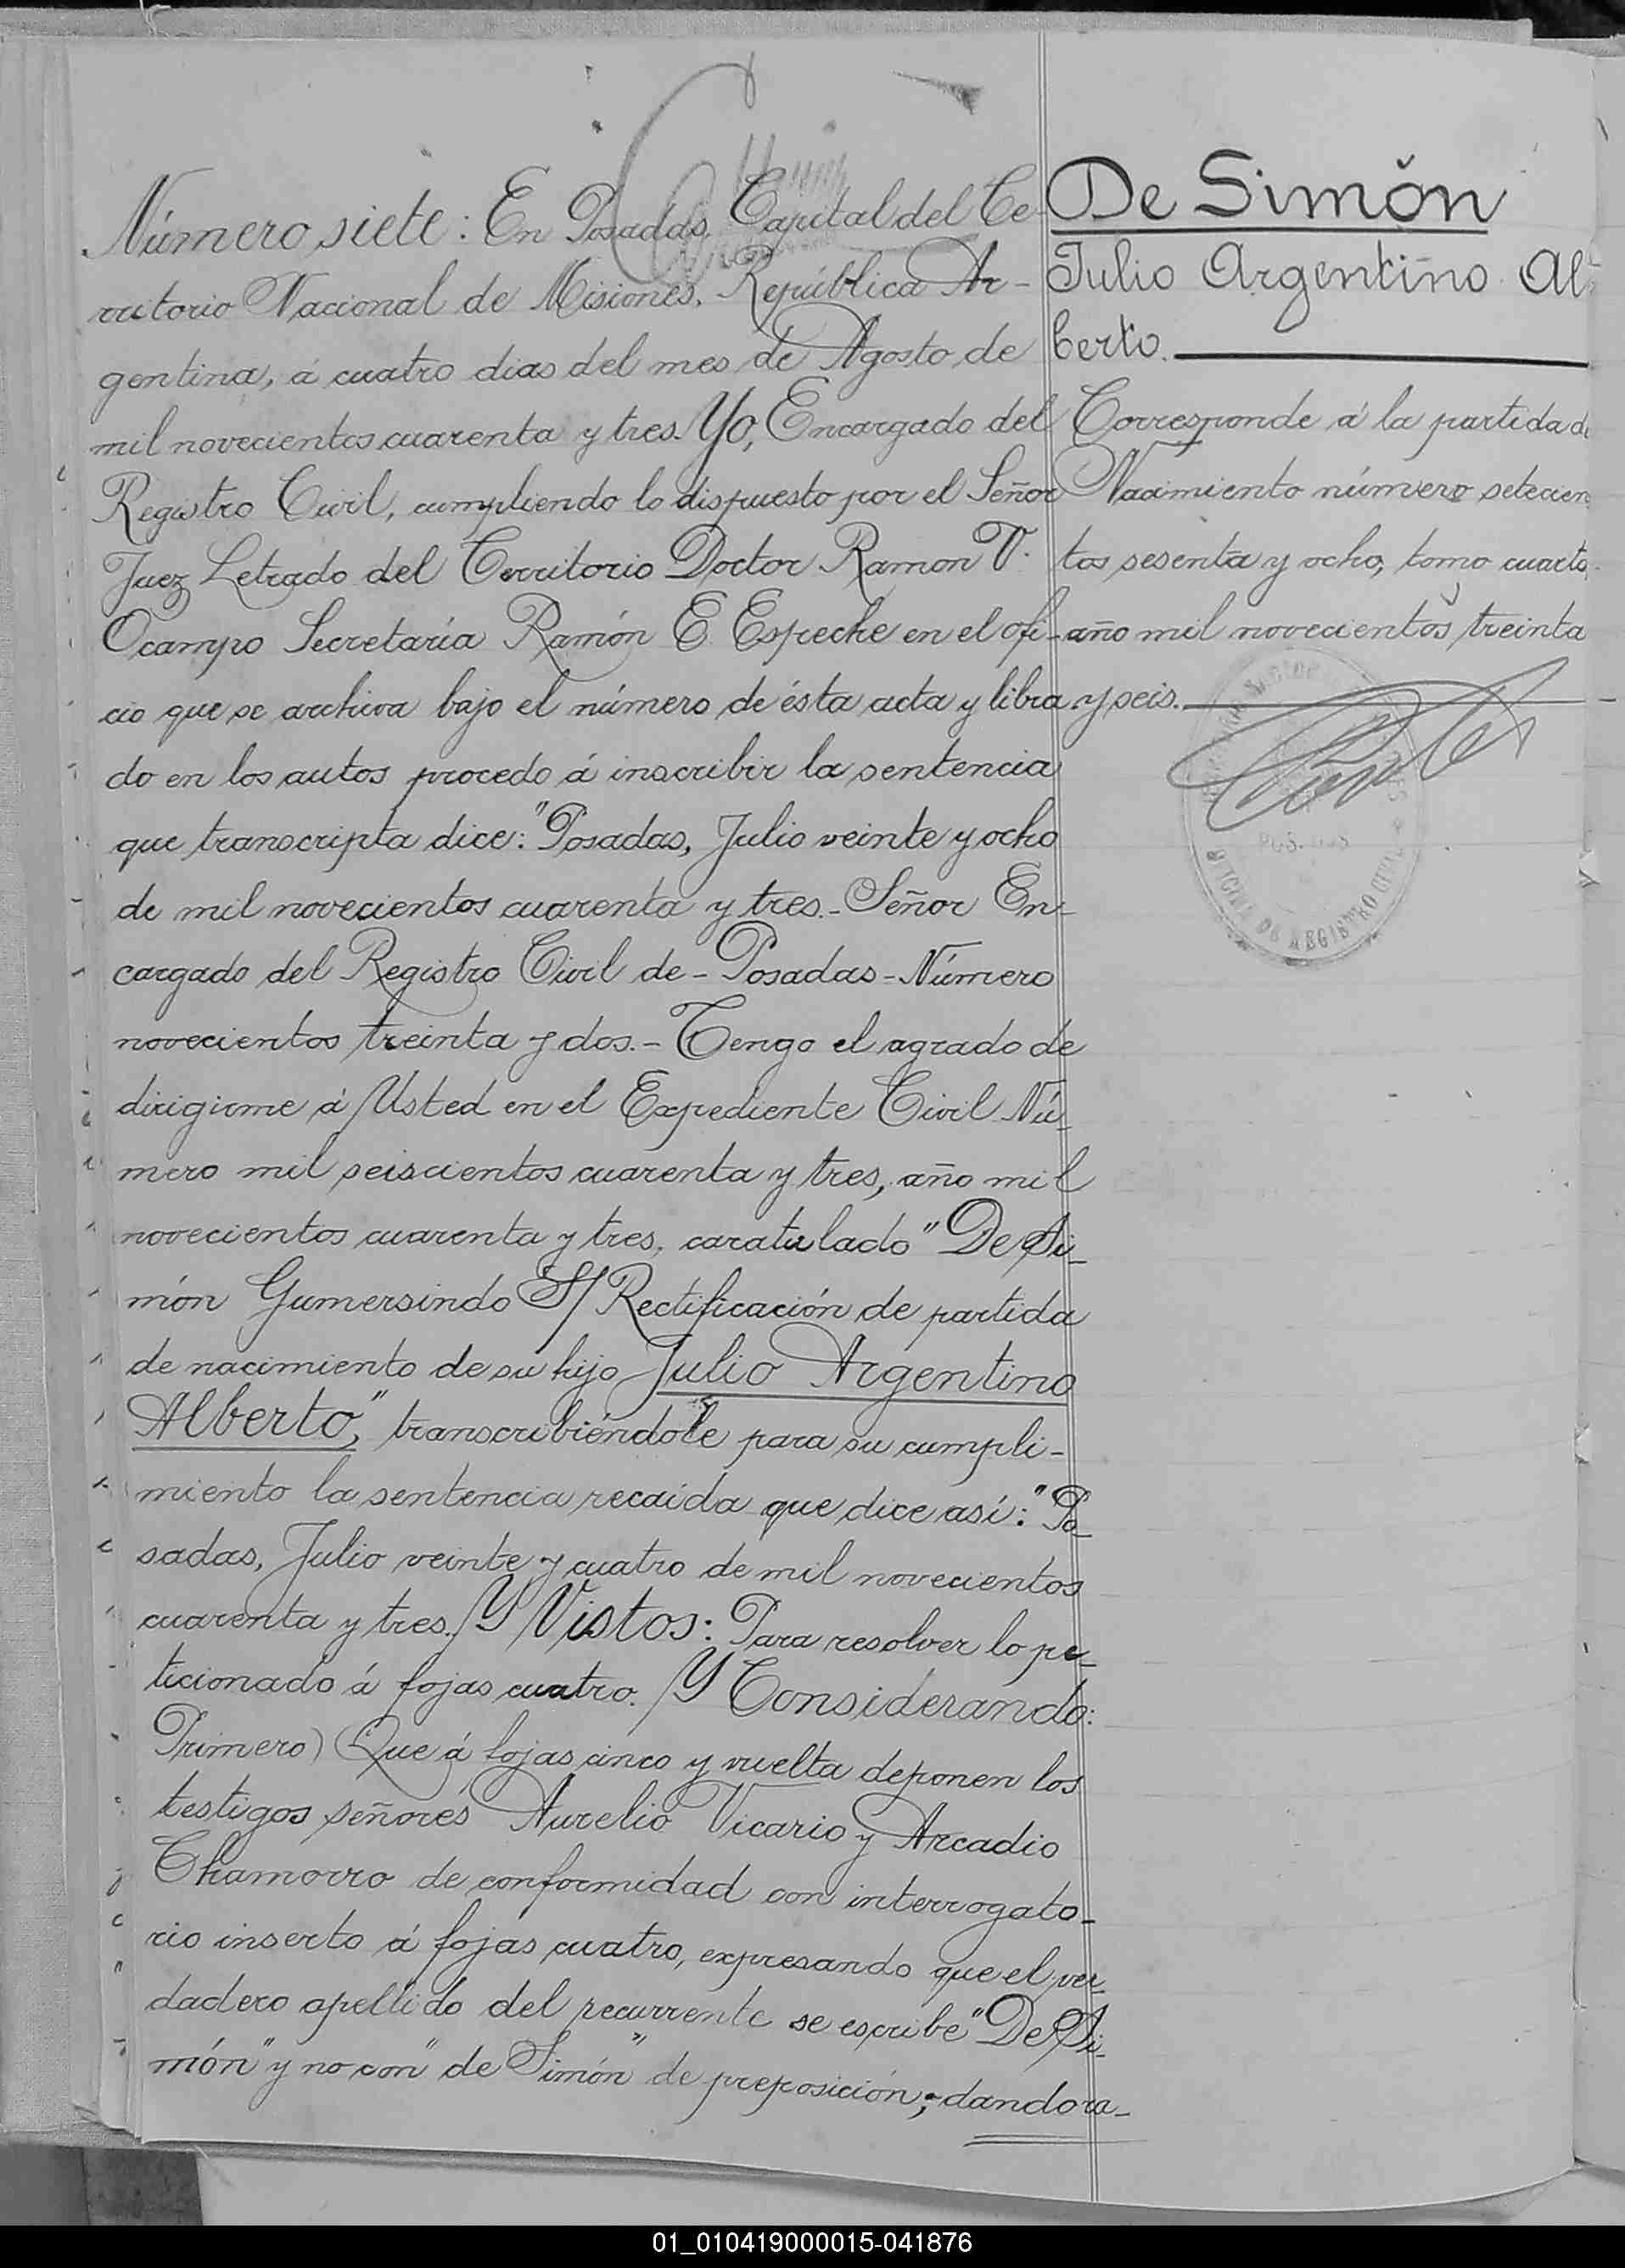 Número siete: En Posadas, Capital del Te-
rritorio Nacional de Misiones, República Ar-
gentina, á cuatro dias del mes de Agosto de
mil novecientos cuarenta y tres. Yo, Encargado del
Registro Civil, cumpliendo lo dispuesto por el Señor
Juez Letrado del Territorio Doctor Ramon V.
Ocampo Secretaría Ramón E. Espeche en el ofi-
cio que se archiva bajo el número de ésta acta y libra
do en los autos procedo á inscribir la sentencia
que transcripta dice: "Posadas, Julio veinte y ocho
de mil novecientos cuarenta y tres.- Señor En-
cargado del Registro Civil de - Posadas - Número
novecientos treinta y dos.- Tengo el agrado de
dirigirme á Usted en el Expediente Civil Nú-
mero mil seiscientos cuarenta y tres, año mil
novecientos cuarenta y tres, caratulado "De Si-
món Gumersindo S/ Rectificación de partida
de nacimiento de su hijo Julio Argentino
Alberto", transcribiéndole para su cumpli-
miento la sentencia recaída que dice así: "Po-
sadas, Julio veinte y cuatro de mil novecientos
cuarenta y tres. Y Vistos: Para resolver lo pe-
ticionado á fojas cuatro. Y Considerando:
Primero) Que á fojas cinco y vuelta deponen los
testigos señores Aurelio Vicario y Arcadio
Chamorro de conformidad con interrogato-
rio inserto á fojas cuatro, expresando que el ver-
dadero apellido del recurrente se escribe "De Si-
món" y no con "de Simón" de preposición; dando ra-
De Simón
Julio Argentino Al-
berto.
Corresponde á la partida de
Nacimiento número setecien
tos sesenta y ocho, tomo cuarto,
año mil novecientos treinta
y seis.
POSADAS
OFICINA DE REGISTRO CIVIL
01_010419000015-041876